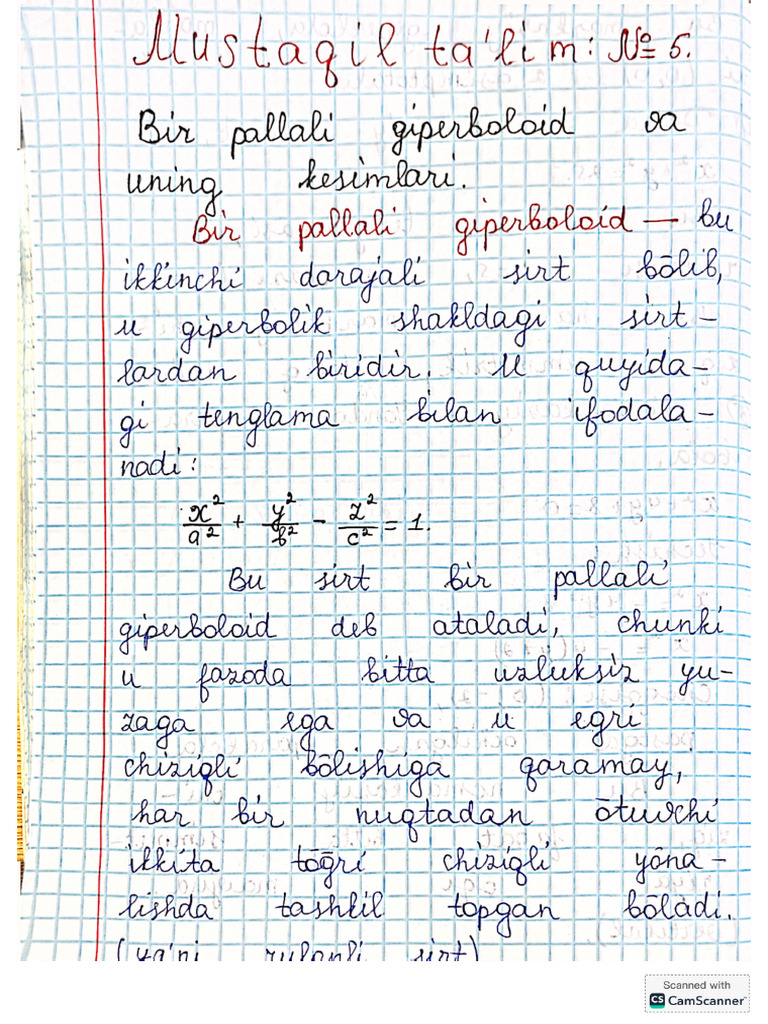 Mustaqil ta'lim: № 5.
Bir pallali giperboloid va
uning kesimlari.
Bir pallali giperboloid — bu
ikkinchi darajali sirt bōlib,
u giperbolik shakldagi sirt-
lardan biridir. U quyida-
gi tenglama bilan ifodala-
nadi:
x²/a² + y²/b² - z²/c² = 1.
Bu sirt bir pallali
giperboloid deb ataladi, chunki
u fazoda bitta uzluksiz yu-
zaga ega va u egri
chiziqli bōlishiga qaramay,
har bir nuqtadan ōtuvchi
ikkita tōḡri chiziqli yōna-
lishda tashkil topgan bōladi.
(ya'ni rulonli sirt)
Scanned with
CS CamScanner